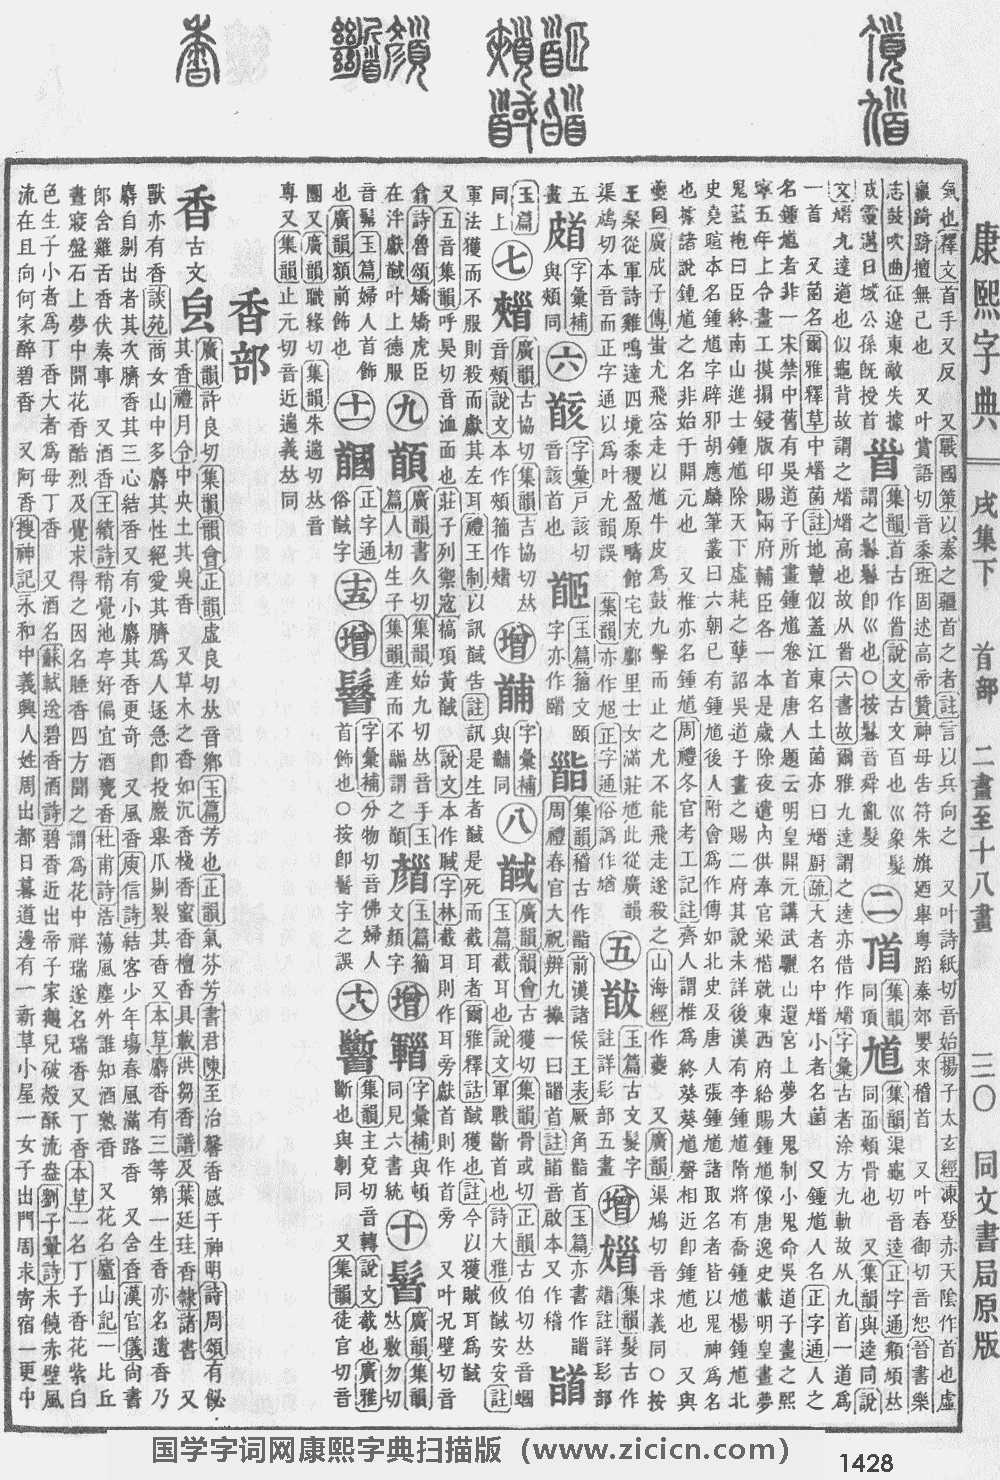 康熙字典 戌集下 首部 二畫至十八畫 三〇 同文書局原版
氣也釋文首手又反 又戰國策以秦之疆首之者註言以兵向之 又叶詩紙切音始揚子太玄經凍登赤天陰作首也虛
巖踦踦擅無己也 又叶賞語切音黍班固述高帝贊神母告符朱旗廼舉粵蹈秦郊嬰來稽首 又叶春御切音恕晉書樂
志鼓吹曲征遼東敵失據
威靈邁日域公孫既授首
𩠐
集韻首古作𩠐說文古文百也巛象髮
謂之鬊鬊卽巛也○按鬊音舜亂髮
二
𩠑
集韻
同頂
馗
集韻渠龜切音逵正字通頯頄𠀤
同面頰骨也 又集韻與逵同說
文馗九達道也似龜背故謂之馗馗高也故从𩠐六書故爾雅九達謂之逵亦借作馗字彙古者涂方九軌故从九首一道爲
一首 又菌名爾雅釋草中馗菌註地蕈似蓋江東名土菌亦曰馗廚疏大者名中馗小者名菌 又鍾馗人名正字通人之
名鍾馗者非一宋禁中舊有吳道子所畫鍾馗卷首唐人題云明皇開元講武驪山還宮上夢大鬼制小鬼命吳道子畫之熙
寧五年上令畫工摸搨鋟版印賜兩府輔臣各一本是歲除夜遣內供奉官梁楷就東西府給賜鍾馗像唐逸史載明皇晝夢
鬼藍袍曰臣終南山進士鍾馗除天下虛耗之孽詔吳道子畫之賜二府其說未詳後漢有李鍾馗隋將有喬鍾馗楊鍾馗北
史堯暄本名鍾馗字辟邪胡應麟筆叢曰六朝已有鍾馗後人附會爲作傳如北史及唐人張鍾馗諸取名者皆以鬼神爲名
也據諸說鍾馗之名非始于開元也 又椎亦名鍾馗周禮冬官考工記註齊人謂椎爲終葵葵馗聲相近卽鍾馗也 又與
夔同廣成子傳蚩尤飛空走以馗牛皮爲鼓九擊而止之尤不能飛走遂殺之山海經作夔 又廣韻渠鳩切音求義同○按
王粲從軍詩雞鳴達四境黍稷盈原疇館宅充廛里士女滿莊馗此從廣韻
渠鳩切本音而正字通以爲叶尤韻誤 集韻亦作馗正字通俗譌作
五
玉篇古文髮字
註詳髟部五畫
增
集韻髮古作
註詳髟部
畫
字彙補
與頰同
六
字彙戸該切
音該首也
玉篇籀文頤
字亦作䫌
集韻稽古作䭫前漢諸侯王表厥角䭫首玉篇亦書作
周禮春官大祝辨九𢷎一曰䭫首註䭫音啟本又作稽
䭫
玉篇
同上
七
廣韻古協切集韻吉協切𠀤
音頰說文本作頰籀作
增
字彙補
與䩉同
八
馘
廣韻韻會古獲切集韻骨或切正韻古伯切𠀤音蟈
玉篇截耳也說文軍戰斷首也詩大雅攸馘安安註
軍法獲而不服則殺而獻其左耳禮王制以訊馘告註訊是生者馘是死而截耳者爾雅釋詁馘獲也註今以獲賊耳爲馘
又五音集韻呼昊切音洫面也莊子列禦寇槁項黃馘 說文本作聝字林截耳則作耳旁獻首則作首旁 又叶况壁切音
侐詩魯頌矯矯虎臣
在泮獻馘叶上德服
九
廣韻書久切集韻始九切𠀤音手玉
篇人初生子集韻產而不䶜謂之
玉篇籀
文顏字
增
字彙補與頓
同見六書統
十
鬐
廣韻集韻
𠀤敷勿切
音髴玉篇婦人首飾
也廣韻額前飾也
十一
正字通
俗馘字
十五
增
字彙補分物切音佛婦人
首飾也○按卽鬐字之誤
十八
集韻主兗切音轉說文截也廣雅
斷也與剸同 又集韻徒官切音
團又廣韻職緣切集韻朱遄切𠀤音
專又集韻止元切音近遄義𠀤同
香部
香
古文
𤽄
廣韻許良切集韻韻會正韻虛良切𠀤音鄉玉篇芳也正韻氣芬芳書君陳至治馨香感于神明詩周頌有飶
其香禮月令中央土其臭香 又草木之香如沉香棧香蜜香檀香具載洪芻香譜及葉廷珪香錄諸書 又
獸亦有香談苑商女山中多麝其性絕愛其臍爲人逐急卽投巖舉爪剔裂其香又本草麝香有三等第一生香亦名遺香乃
麝自剔出者其次臍香其三心結香又有小麝其香更奇 又風香庾信詩結客少年塲春風滿路香 又舍香漢官儀尙書
郞舍雞舌香伏奏事 又酒香王績詩稍覺池亭好偏宜酒甕香杜甫詩浩蕩風塵外誰知酒熟香 又花名廬山記一比丘
晝寢盤石上夢中聞花香酷烈及覺求得之因名睡香四方聞之謂爲花中祥瑞遂名瑞香又丁香本草一名丁子香花紫白
色生子小者爲丁香大者爲母丁香 又酒名蘇軾送碧香酒詩碧香近出帝子家鵝兒破殼酥流盎劉子翬詩未饒赤壁風
流在且向何家醉碧香 又阿香搜神記永和中義興人姓周出都日暮道邊有一新草小屋一女子出門周求寄宿一更中
国学字词网康熙字典扫描版（www.zicicn.com）
1428